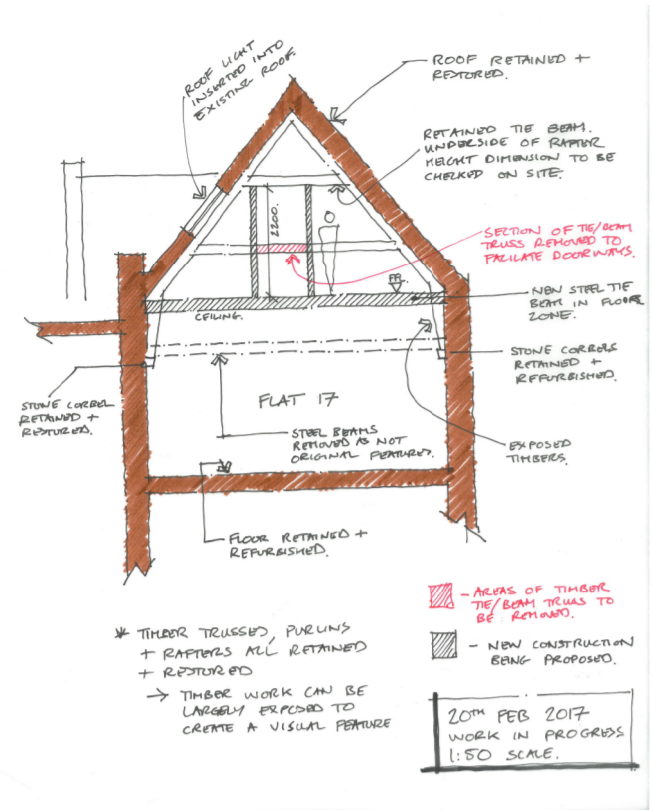 ROOF LIGHT
INSERTED INTO
EXISTING ROOF.
ROOF RETAINED +
RESTORED.
RETAINED TIE BEAM.
UNDERSIDE OF RAFTER
HEIGHT DIMENSION TO BE
CHECKED ON SITE.
2200.
SECTION OF TIE/BEAM
TRUSS REMOVED TO
FACILATE DOORWAYS.
FFL
NEW STEEL TIE
BEAM IN FLOOR
ZONE.
CEILING.
STONE CORBELS
RETAINED +
REFURBISHED.
STONE CORBEL
RETAINED +
RESTORED.
FLAT 17
STEEL BEAMS
REMOVED AS NOT
ORIGINAL FEATURES.
EXPOSED
TIMBERS.
FLOOR RETAINED +
REFURBISHED.
- AREAS OF TIMBER
TIE/BEAM TRUSS TO
BE REMOVED.
- NEW CONSTRUCTION
BEING PROPOSED.
* TIMBER TRUSSED, PURLINS
+ RAFTERS ALL RETAINED
+ RESTORED
→ TIMBER WORK CAN BE
LARGELY EXPOSED TO
CREATE A VISUAL FEATURE
20TH FEB 2017
WORK IN PROGRESS
1:50 SCALE.